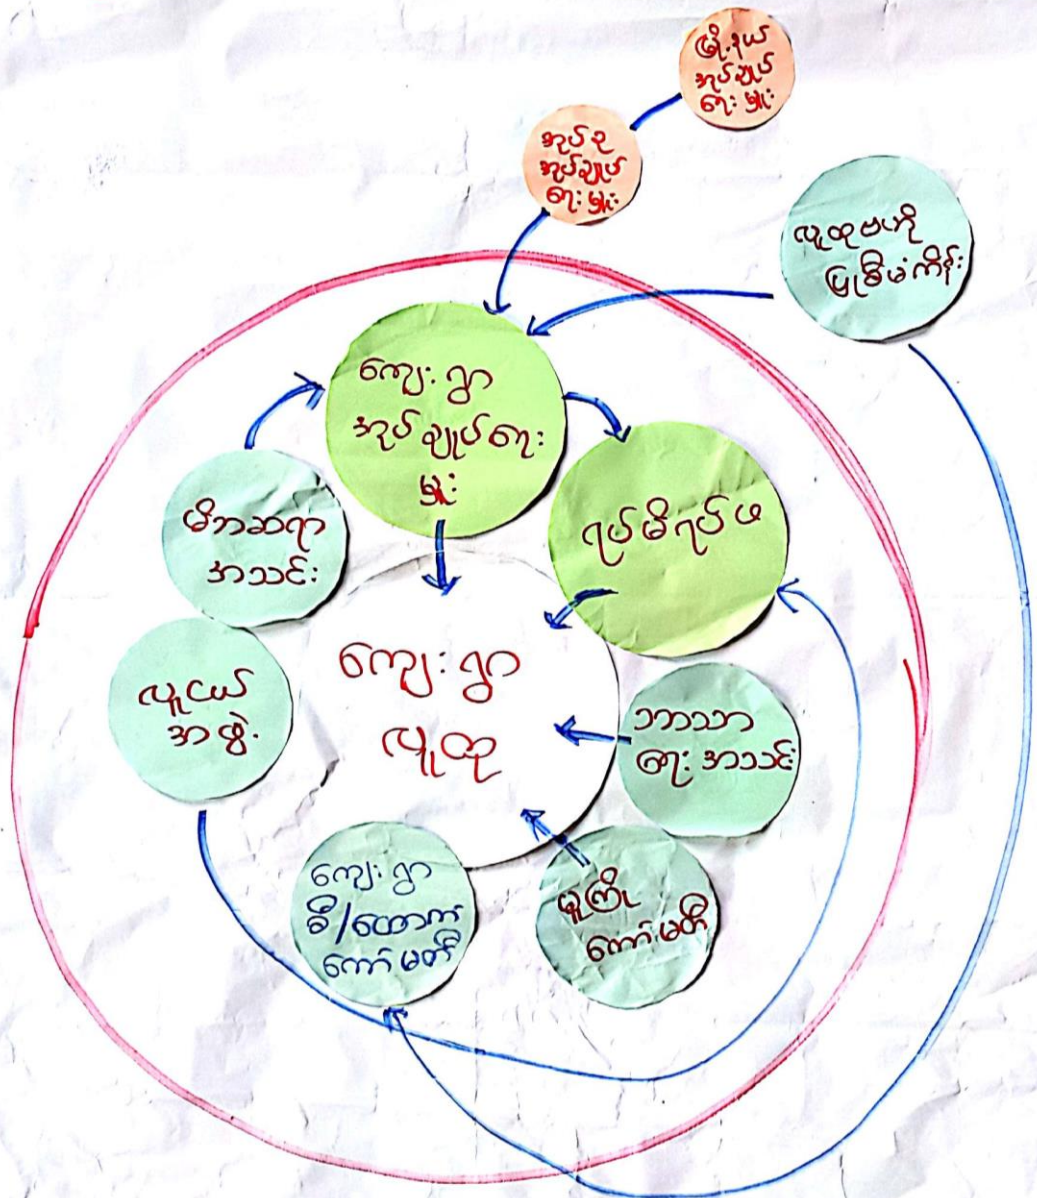 မြို့နယ်
အုပ်ချုပ်
ရေးမှူး
အုပ်စု
အုပ်ချုပ်
ရေးမှူး
လူထုဗဟို
ပြုစီမံကိန်း
ကျေးရွာ
အုပ်ချုပ်ရေး
မှူး
ရပ်မိရပ်ဖ
မိဘဆရာ
အသင်း
လူငယ်
အဖွဲ့
ကျေးရွာ
လူထု
ဘာသာ
ရေးအသင်း
ကျေးရွာ
စီ/ထောက်
ကော်မတီ
မူကြို
ကော်မတီ